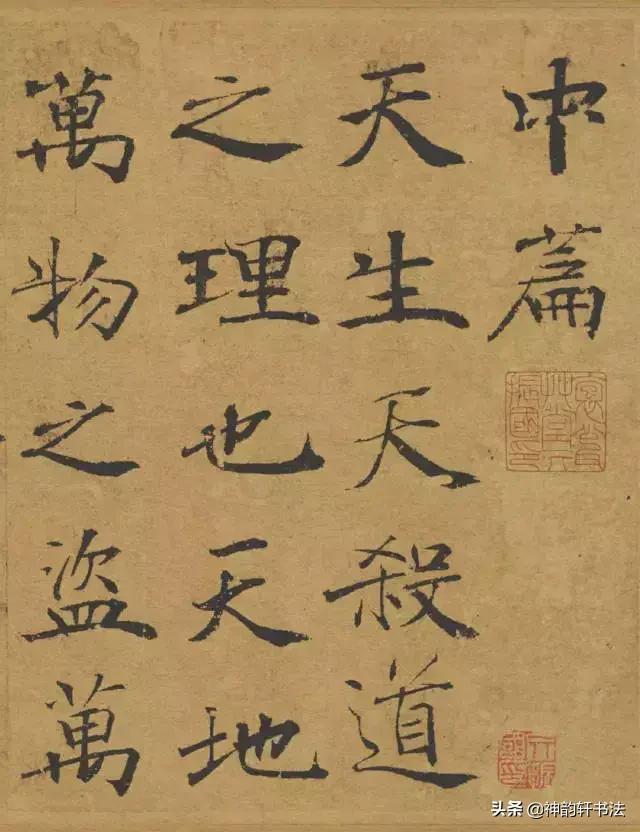 中篇
天生天殺道
之理也天地
萬物之盜萬
头条 @神韵轩书法